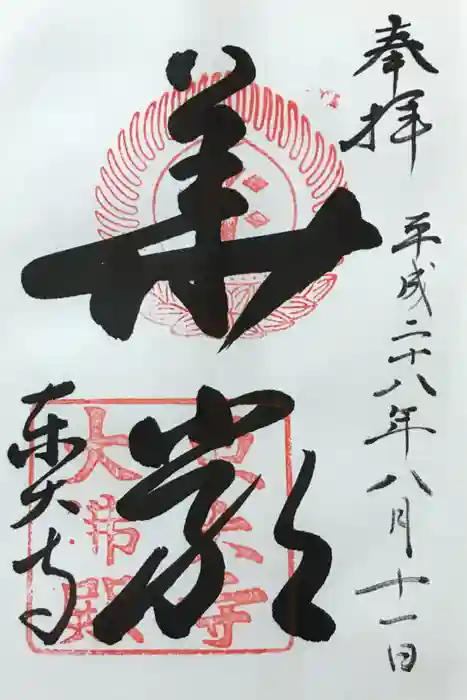 奉拝
平成二十八年八月十一日
華嚴
東大寺
東大寺
大佛殿